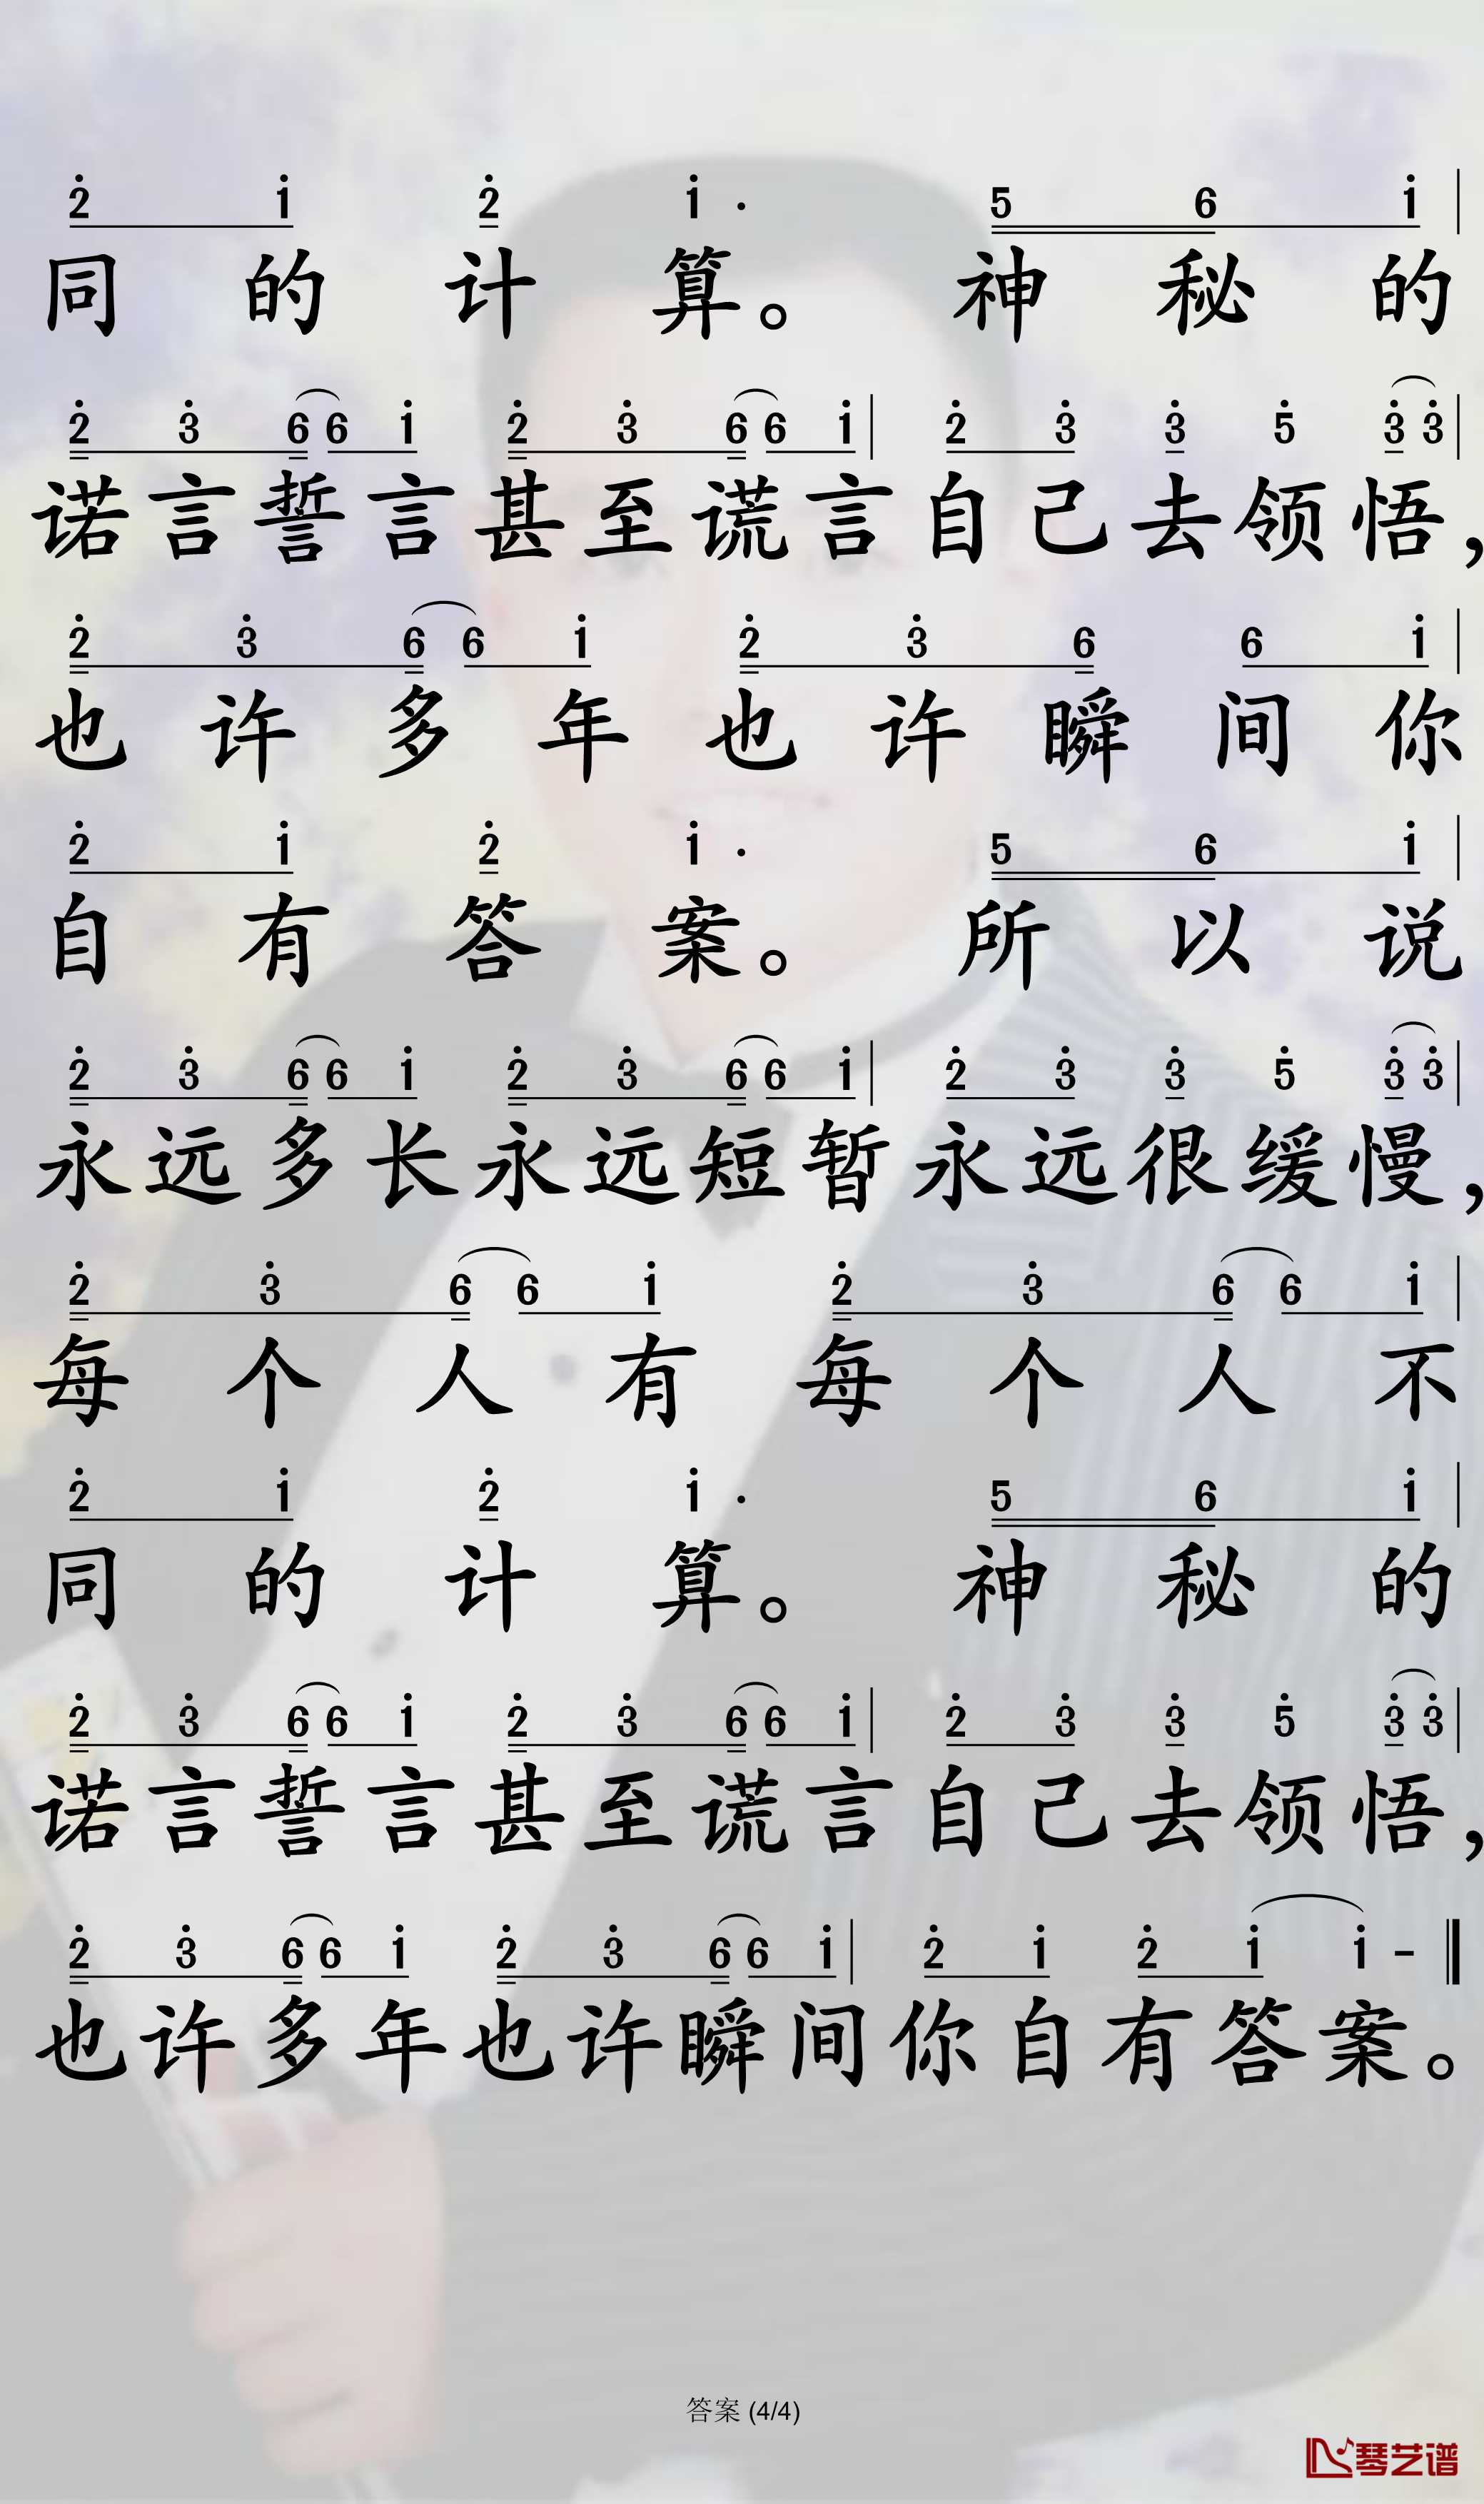 2̇ 1̇ 2̇ 1̇ · 5 6 1̇ |
同的计算。神秘的
2̇ 3̇ 6 6 1̇ 2̇ 3̇ 6 6 1̇ | 2̇ 3̇ 3̇ 5̇ 3̇ 3̇ |
诺言誓言甚至谎言自己去领悟，
2̇ 3̇ 6 6 1̇ 2̇ 3̇ 6 6 1̇ |
也许多年也许瞬间你
2̇ 1̇ 2̇ 1̇ · 5 6 1̇ |
自有答案。所以说
2̇ 3̇ 6 6 1̇ 2̇ 3̇ 6 6 1̇ | 2̇ 3̇ 3̇ 5̇ 3̇ 3̇ |
永远多长永远短暂永远很缓慢，
2̇ 3̇ 6 6 1̇ 2̇ 3̇ 6 6 1̇ |
每个人有每个人不
2̇ 1̇ 2̇ 1̇ · 5 6 1̇ |
同的计算。神秘的
2̇ 3̇ 6 6 1̇ 2̇ 3̇ 6 6 1̇ | 2̇ 3̇ 3̇ 5̇ 3̇ 3̇ |
诺言誓言甚至谎言自己去领悟，
2̇ 3̇ 6 6 1̇ 2̇ 3̇ 6 6 1̇ | 2̇ 1̇ 2̇ 1̇ 1̇ - ‖
也许多年也许瞬间你自有答案。
答案 (4/4)
琴艺谱